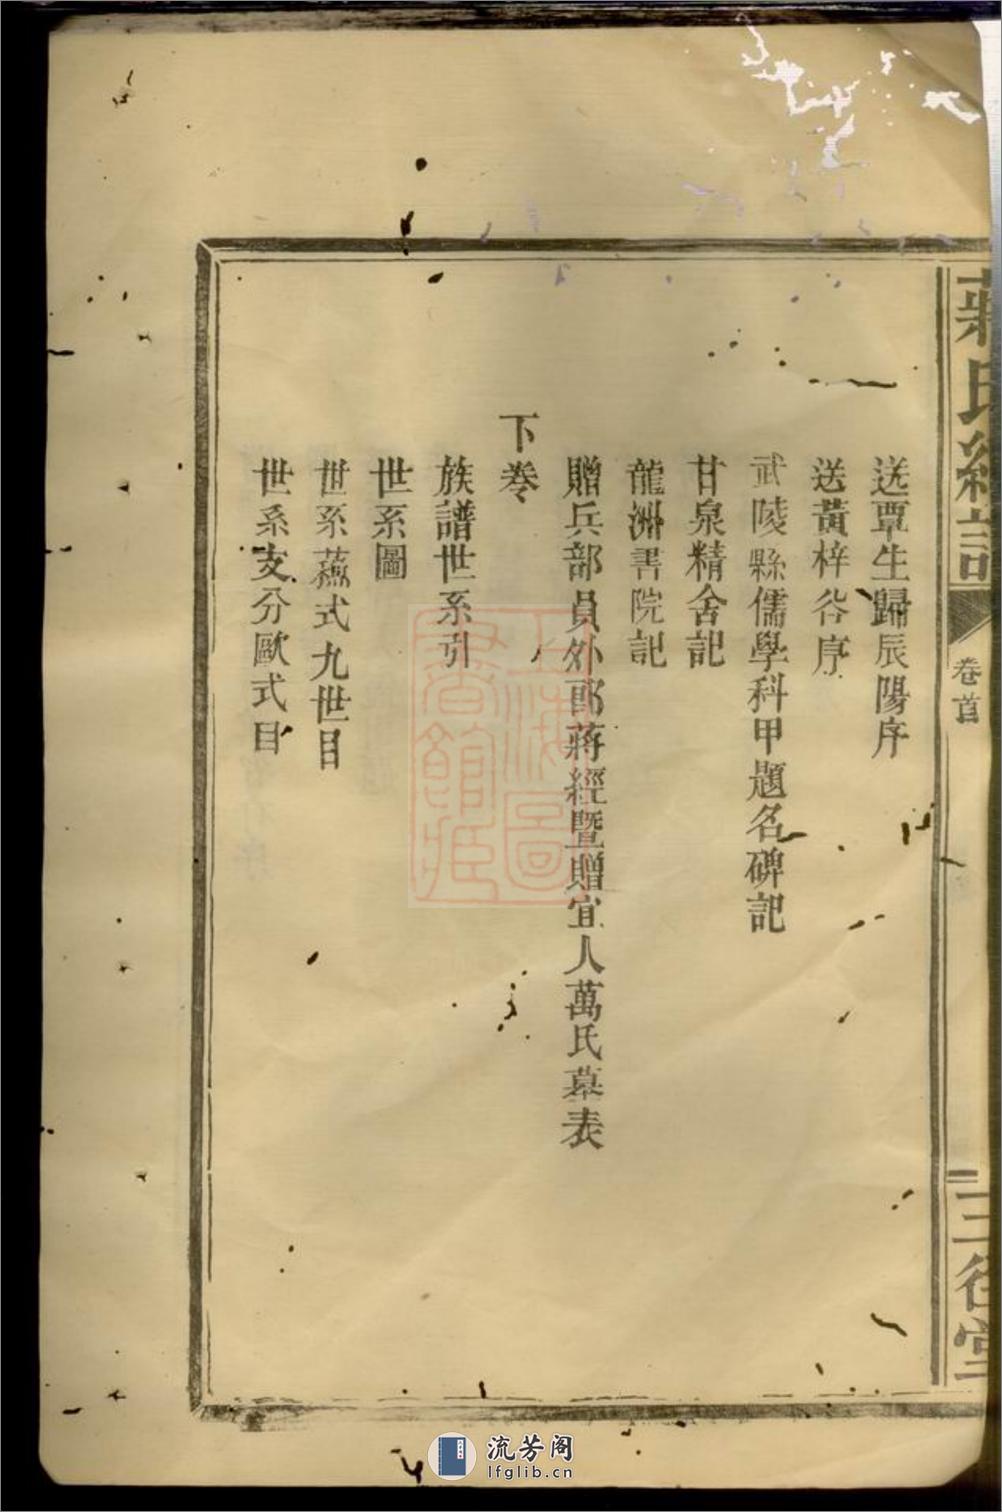 蔣氏續譜
卷首
三徑堂
送覃生歸辰陽序
送黃梓谷序
武陵縣儒學科甲題名碑記
甘泉精舍記
龍洲書院記
贈兵部員外郎蔣經暨贈宜人萬氏墓表
下卷
族譜世系引
世系圖
世系蘓式九世目
世系支分歐式目
上海圖書館藏
流芳阁
lfglib.cn